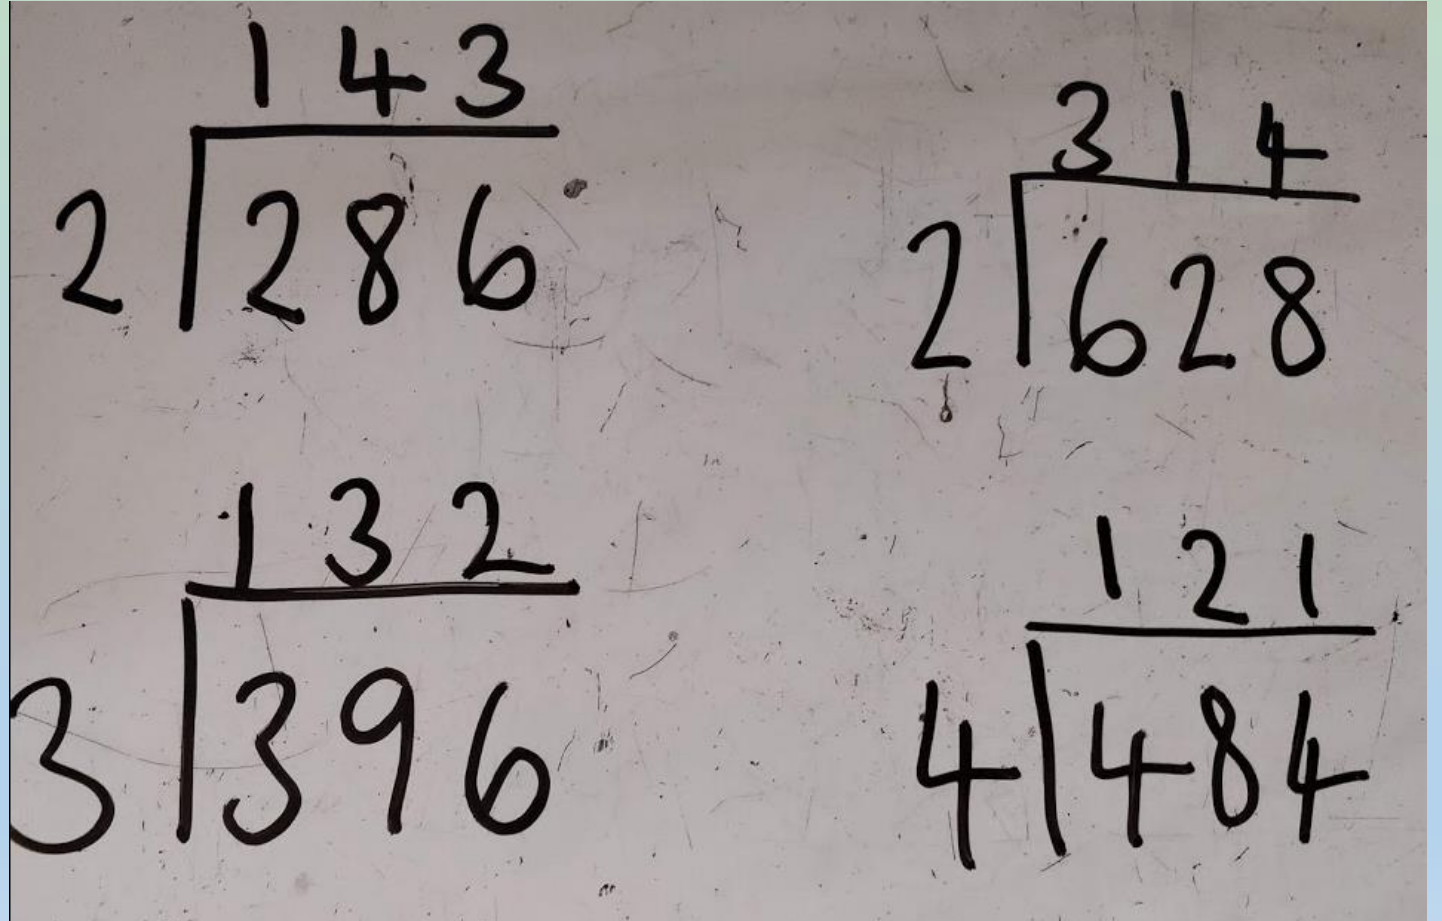 143
2 286
314
2 628
132
3 396
121
4 484